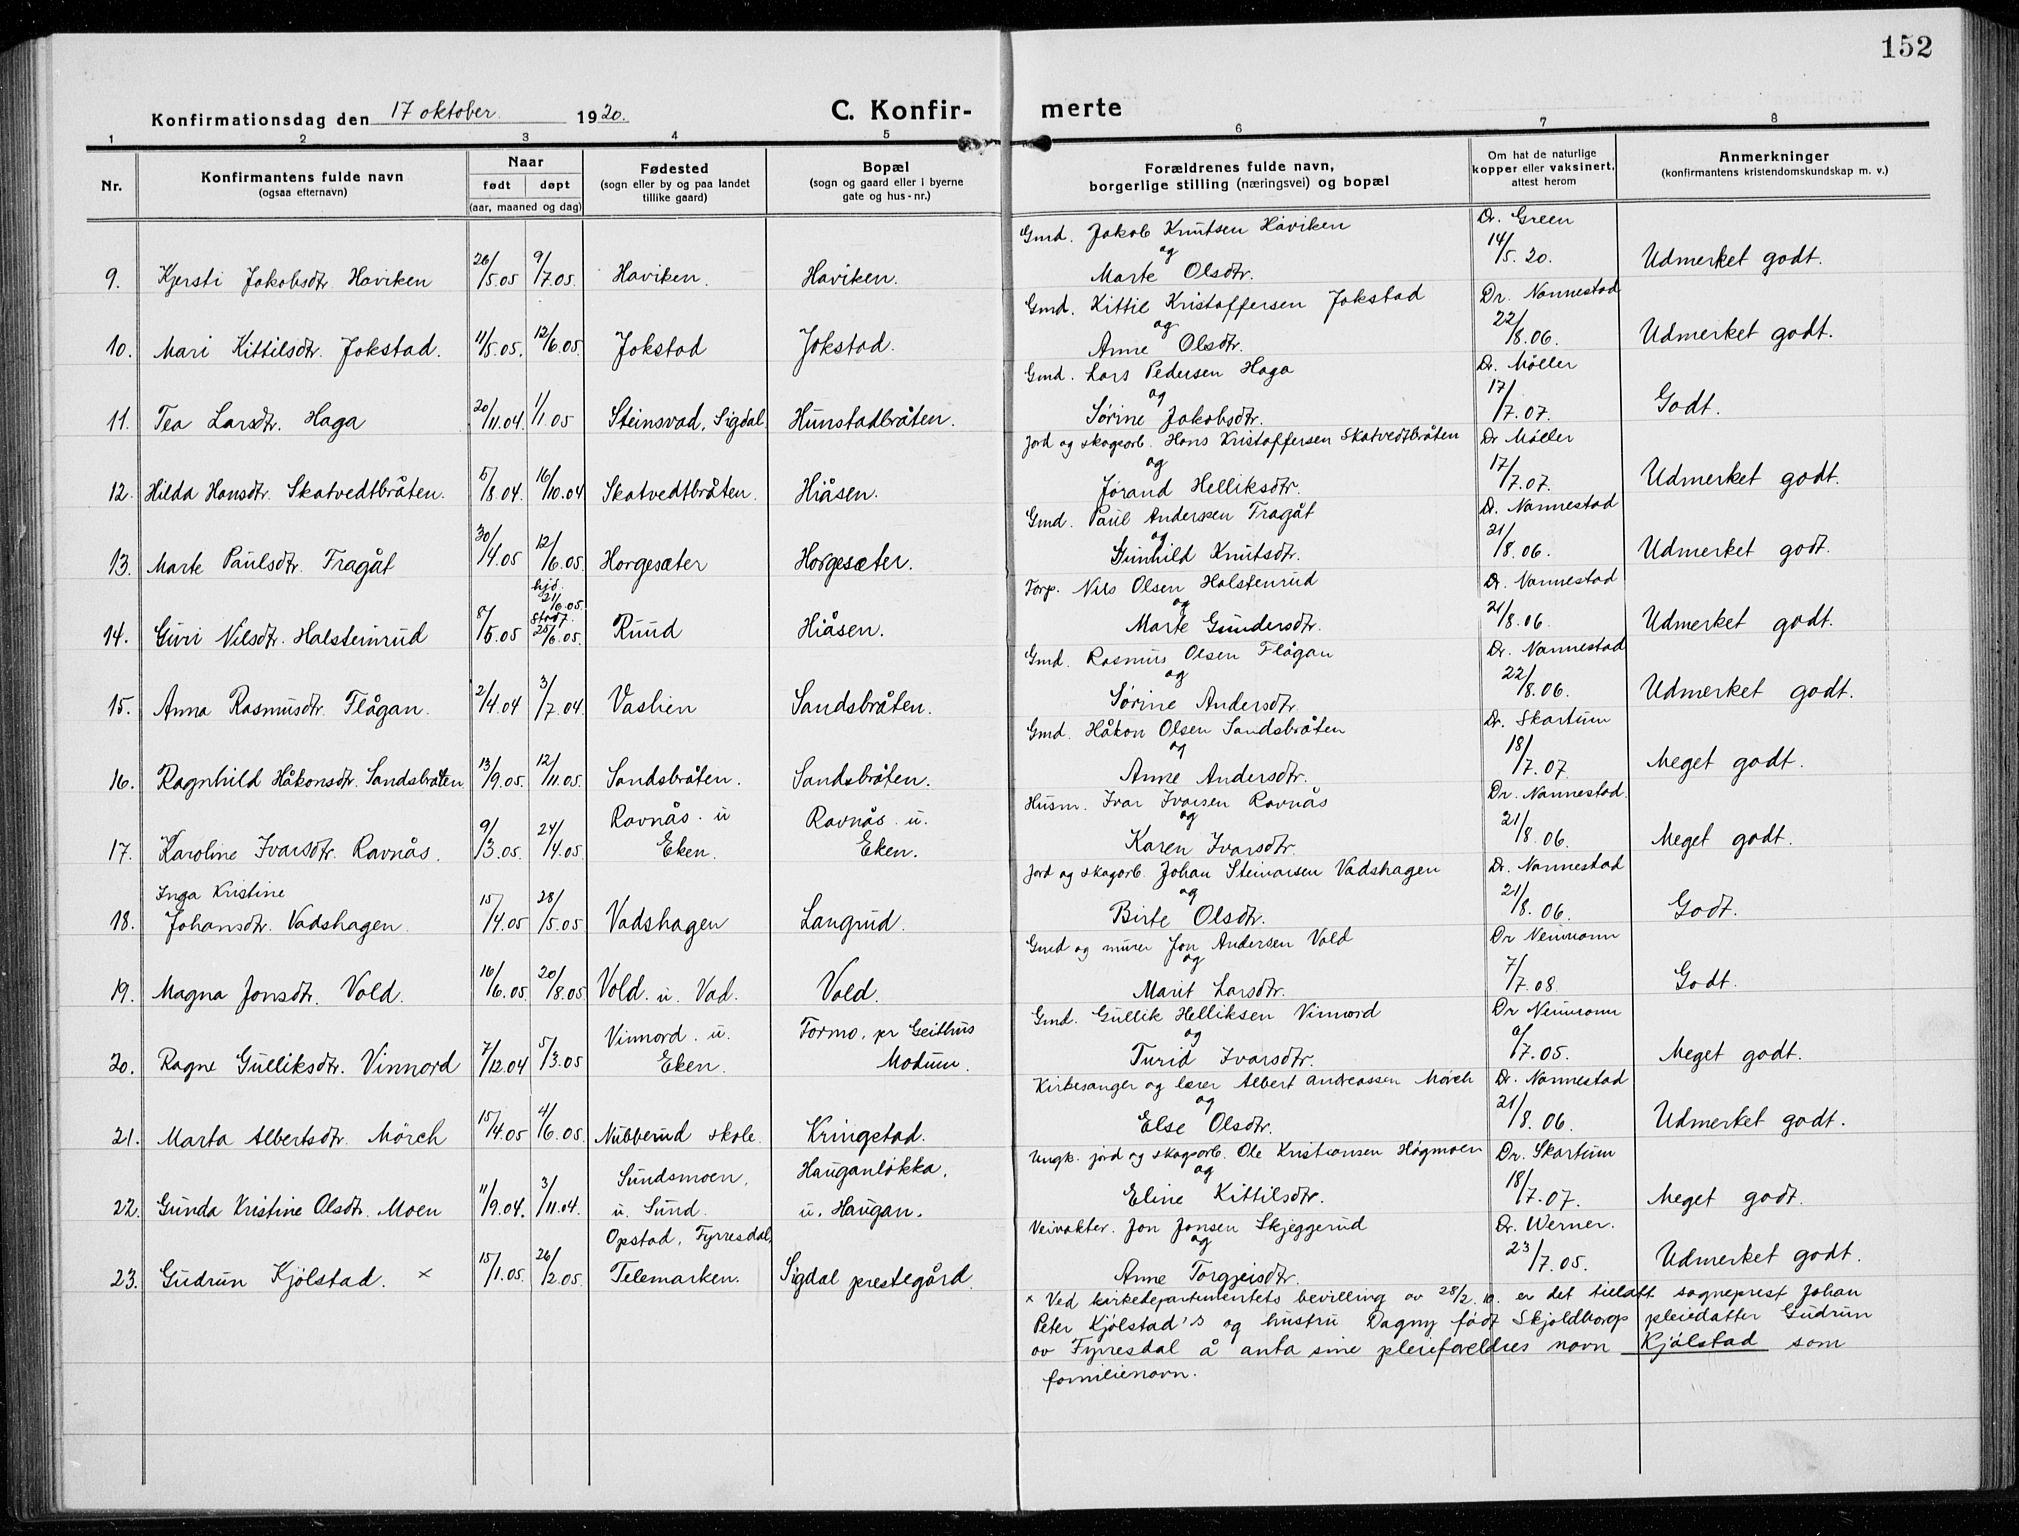 152
Konfirmationsdag den 17 oktober 1920. C. Konfir- merte
1 2 3 4 5 6 7 8
Nr. Konfirmantens fulde navn (ogsaa efternavn) Naar født døpt (aar, maaned og dag) Fødested (sogn eller by og paa landet tillike gaard) Bopæl (sogn og gaard eller i byerne gate og hus-nr.) Forældrenes fulde navn, borgerlige stilling (næringsvei) og bopæl Om hat de naturlige kopper eller vaksinert, attest herom Anmerkninger (konfirmantens kristendomskundskap m. v.)
Gmd. Jakob Knutsen Haviken Dr. Green
og 14/5. 20.
9. Kjersti Jakobsdtr Haviken 26/5.05 9/7.05. Haviken. Haviken. Marte Olsdtr. Udmerket godt.
Gmd. Kittil Kristoffersen Jokstad Dr. Nannestad
og 22/8.06.
10. Mari Kittilsdtr. Jokstad. 11/5.05. 12/6.05. Jokstad Jokstad. Anne Olsdtr. Udmerket godt.
Gmd. Lars Pedersen Haga Dr. Møller
og 17/7.07.
11. Tea Larsdtr. Haga 20/11.04. 1/1.05 Steinsvad, Sigdal Hunstadbråten. Sørine Jakobsdtr. Godt.
Jord og skogsarb. Hans Kristoffersen Skatvedtbråten Dr Møller
og 17/7.07.
12. Hilda Hansdtr. Skatvedtbråten. 5/8.04. 16/10.04 Skatvedtbråten. Hiåsen. Jørand Helliksdtr. Udmerket godt.
Gmd. Paul Andersen Fragåt Dr. Nannestad
og 21/8.06.
13. Marte Paulsdtr. Fragåt 30/4.05 12/6.05. Horgesæter Horgesæter. Gunhild Knutsdtr. Udmerket godt.
Torp. Nils Olsen Halstenrud Dr. Nannestad
hjd. 21/6.05. og 21/8.06.
14. Guri Nilsdtr. Halsteinrud 8/5.05 stadf. 25/6.05. Ruud Hiåsen. Marte Gundersdtr. Udmerket godt.
Gmd. Rasmus Olsen Flågan Dr. Nannestad
og 22/8.06.
15. Anna Rasmusdtr. Flågan. 2/4.04 3/7.04. Vaslien Sandsbråten. Sørine Andersdtr. Udmerket godt.
Gmd. Håkon Olsen Sandsbråten Dr. Skartum
og 18/7.07.
16. Ragnhild Håkonsdtr. Sandsbråten 13/9.05. 12/11.05. Sandsbråten. Sandsbråten. Anne Andersdtr. Meget godt.
Husm. Ivar Ivarsen Ravnås Dr. Nannestad.
Ravnås. u Ravnås. u. og 21/8.06.
17. Karoline Ivarsdtr. Ravnås. 9/3.05. 24/4.05. Eken. Eken. Karen Ivarsdtr. Meget godt.
Jord og skogarb. Johan Steinarsen Vadshagen Dr. Nannestad
Inga Kristine og 21/8.06.
18. Johansdtr. Vadshagen. 15/4.05 28/5.05 Vadshagen Langrud. Birte Olsdtr. Godt.
Gmd og murer Jon Andersen Vold Dr Neumann
og 7/7.08.
19. Magna Jonsdtr. Vold. 16/6.05. 20/8.05 Vold. u. Vad. Vold. Marit Larsdtr. Godt.
Gmd. Gullik Helliksen Vinnord Dr Neumann
Vinnord. u. Formo. pr Geithus og /7.05.
20. Ragne Gulliksdtr. Vinnord 7/12.04 5/3.05 Eken. Modum. Turid Ivarsdtr. Meget godt.
Kirkesanger og lærer Albert Andreassen Mørch Dr. Nannestad
og 21/8.06.
21. Marta Albertsdtr. Mörch 15/4.05 4/6.05. Nubberud skole. Kringstad. Else Olsdtr. Udmerket godt.
Ungk. jord og skogsarb. Ole Kristiansen Hågmoen Dr. Skartum
Sundsmoen, Hauganløkka, og 18/7.07.
22. Gunda Kristine Olsdtr. Moen 11/9.04. 3/11.04. u. Sund. u. Haugan. Eline Kittilsdtr. Meget godt.
Veivokter. Jon Jonsen Skjeggerud Dr. Werner.
Opstad, Fyrresdal, og 23/7.05.
23. Gudrun Kjölstad. × 15/1.05. 26/2.05. Telemarken. Sigdal prestegård. Anne Torgjeisdtr. Udmerket godt.
× Ved kirkedepartementets bevilling av 28/2.10. er det tillatt sogneprest Johan
Peter Kjölstad's og hustru Dagny født Skjoldborgs pleiedatter Gudrun
av Fyrresdal å anta sine pleieforeldres navn Kjölstad som
familienavn.